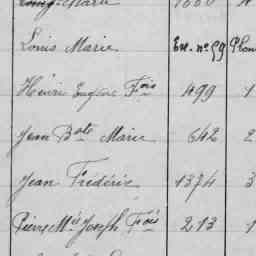 Marie
Louis Marie Ext. nº 59
Henri Eugène Fois 499 1
Jean Bste Marie 642 2
Jean Frédéric 1374 3
Pierre Mie Joseph Fois 213 1